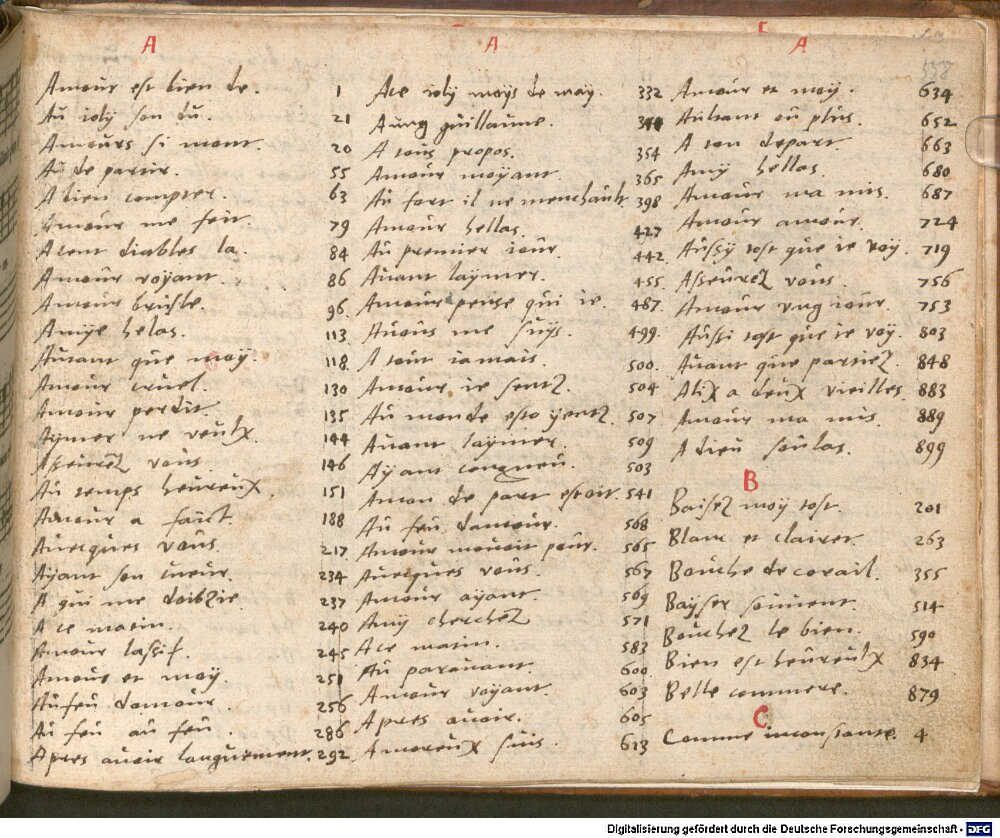 A
Amour est bien de. 1
Au ioly son du. 21
Amours si mont. 20
Au de partir. 55
A bien compter. 63
Amour me feit. 79
A cent diables la. 84
Amour voyant. 86
Amour brusle. 96
Amye helas. 113
Autant que moy. 118
Amour cruel. 130
Amour perdit. 135
Aymer ne veulx. 144
Asseurez vous. 146
Au temps heureux. 151
Amour a faict. 188
Auecques vous. 217
Ayant son cueur. 234
A qui me doibzie. 237
A ce matin. 240
Amour lassif. 245
Amour et moy. 251
Au feu damour. 256
Au feu au feu. 286
Apres auoir longuement. 292
A
A ce ioly moys de may. 332
A ung guillaume.
A tous propos. 354
Amour moyant. 365
Au fort il ne menchault 398
Amour hellas. 427
Au premier iour. 442
Auant laymer. 455
Amour pense qui ie. 487
Auous me suys. 499
A tout iamais. 500
Amour ie sentz. 504
Au monde estoyentz. 507
Auant laymer. 509
Ayant congneu. 503
Amon de part estoit. 541
Au feu damour. 568
Amour mouoit pour. 565
Auecques vous. 567
Amour ayant. 569
Amy cherchez 571
A ce matin. 583
Au parauant. 600
Amour voyant. 603
Apres auoir. 605
Amoreux suis. 613
A
558
Amour et moy. 634
Aultant ou plus. 652
A son depart 663
Amy hellas. 680
Amour ma mis. 687
Amour amour. 724
Aussy tost que ie voy. 719
Asseurez vous. 756
Amour vng iour. 753
Aussi tost que ie voy. 803
Auant que partiez. 848
Alix a deux vieilles. 883
Amour ma mis. 889
A dieu soulas. 899
B
Baisez moy tost. 201
Blanc et clairet. 263
Bouche de corail. 355
Bayser souuent. 514
Bouchez le bien. 590
Bien est heureulx 834
Belle commere. 879
C
Comme inconstante. 4
Digitalisierung gefördert durch die Deutsche Forschungsgemeinschaft - DFG